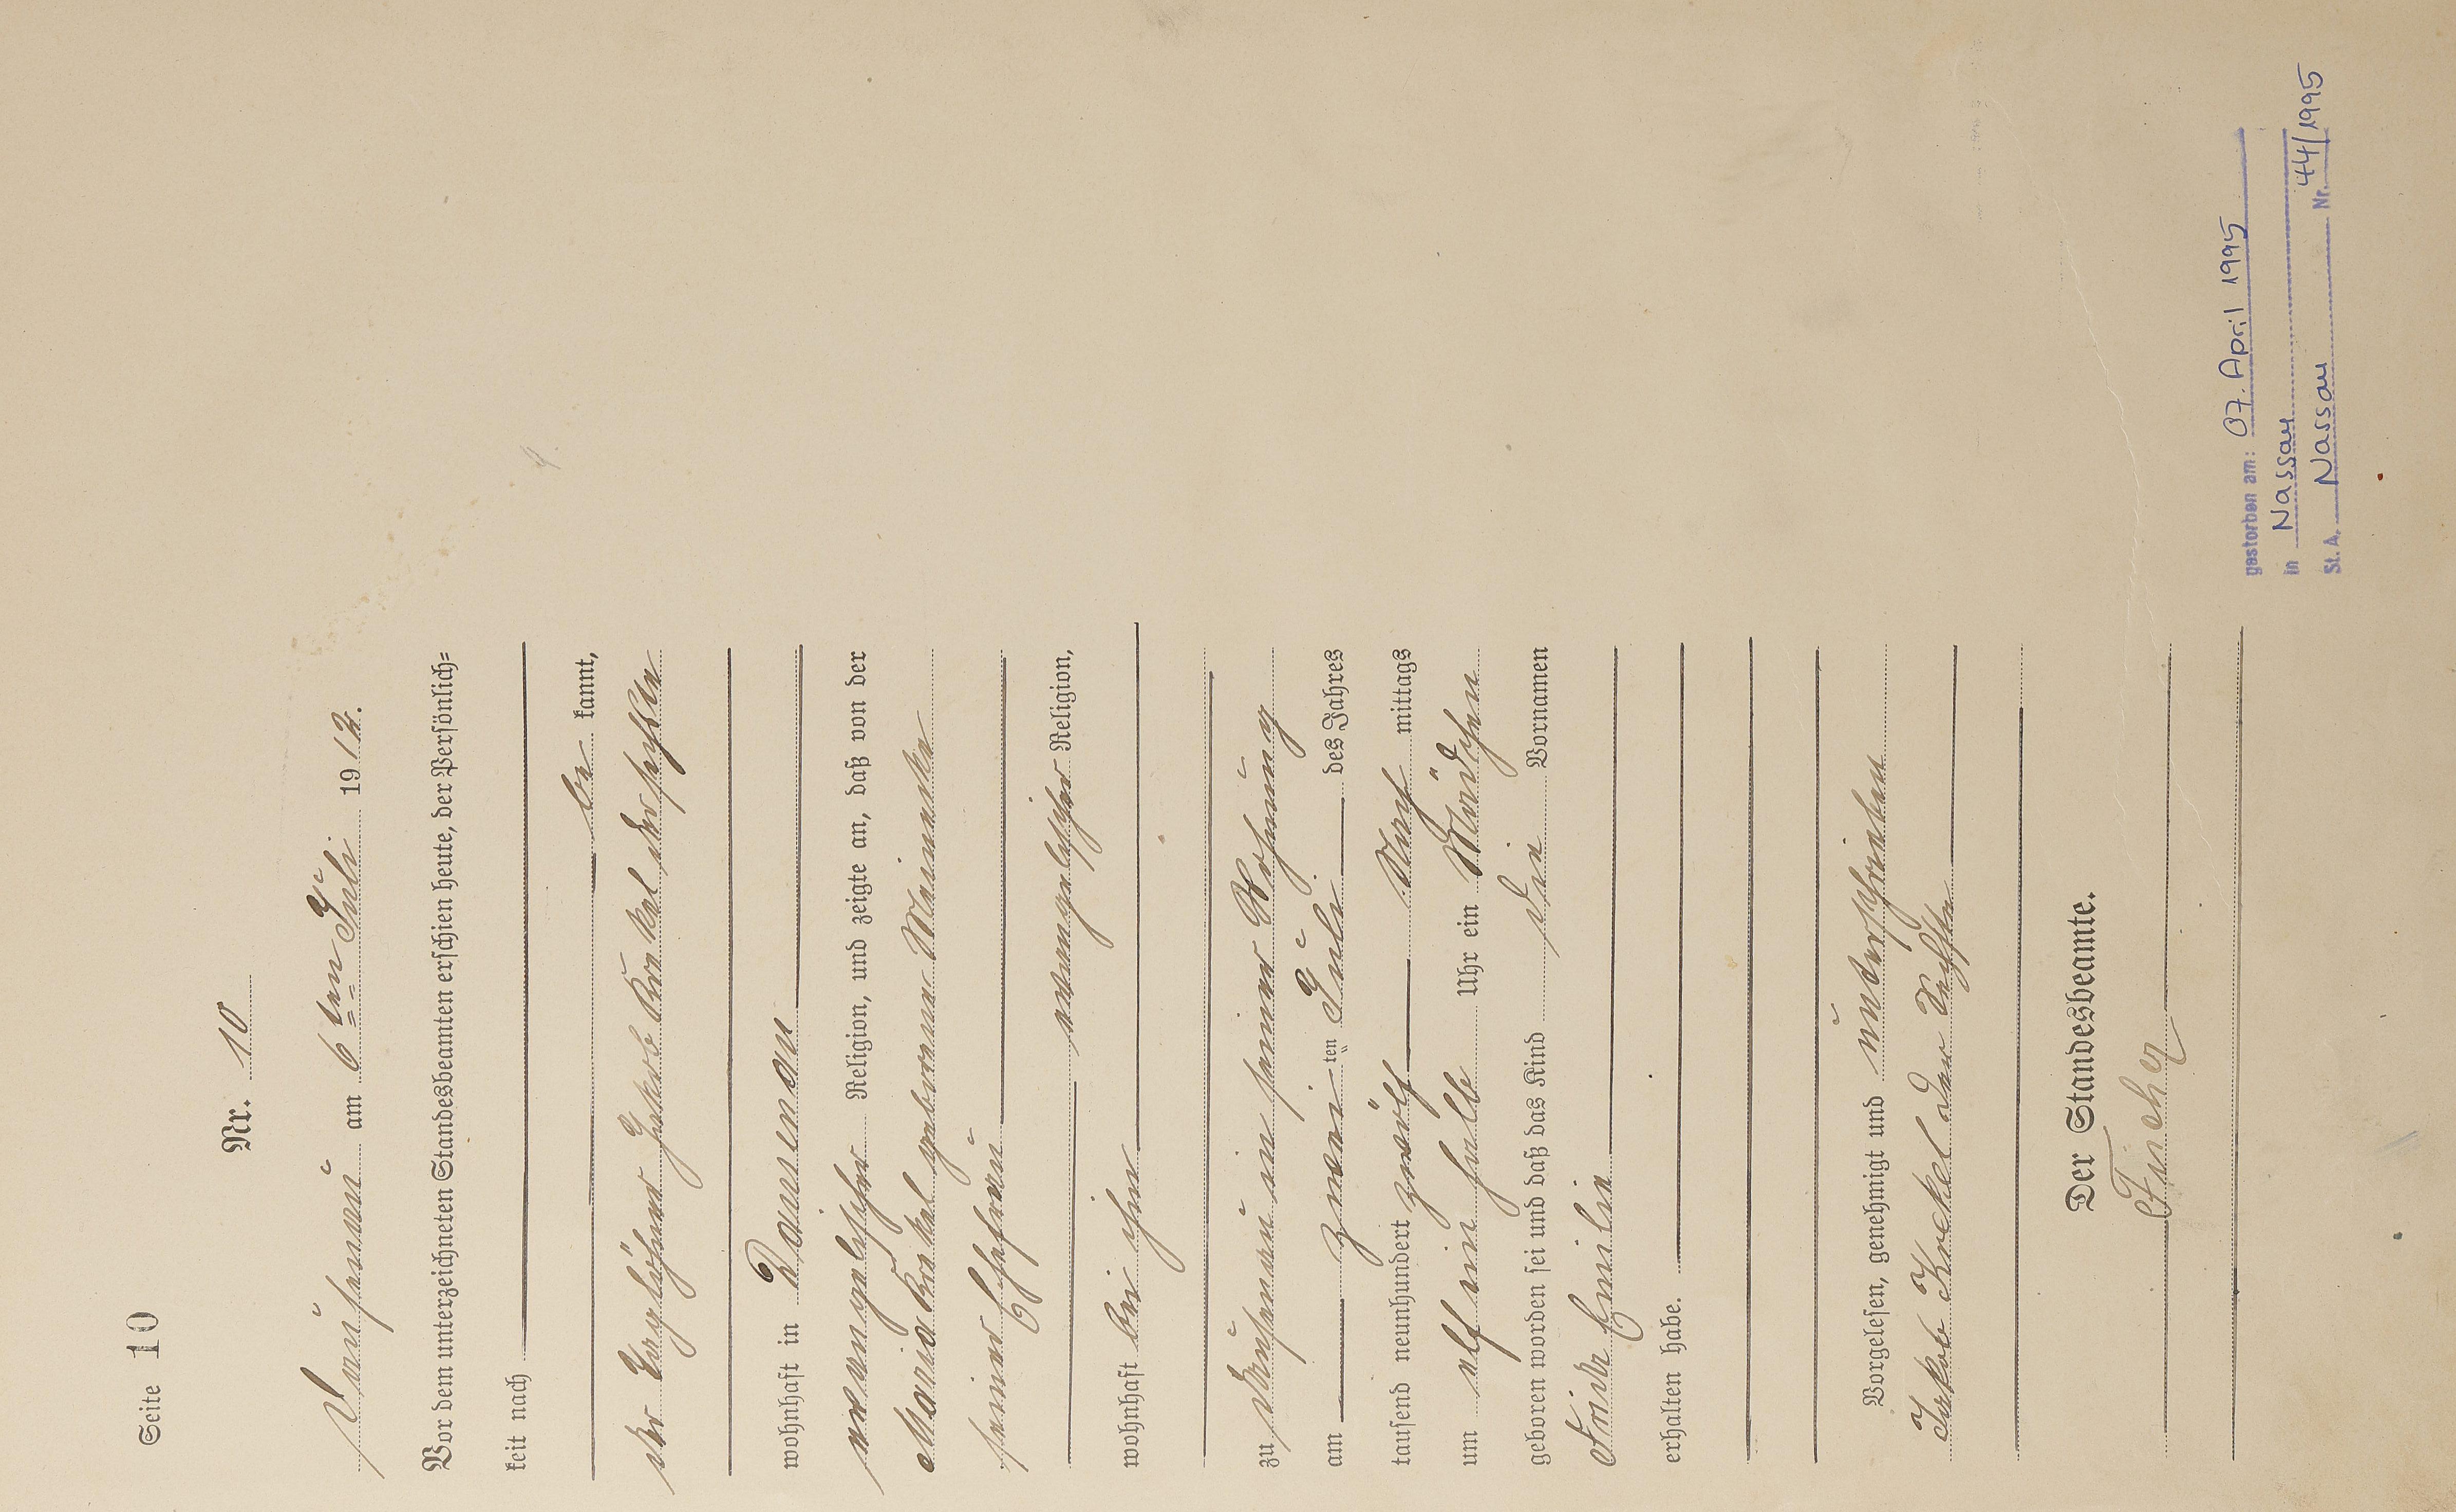 Seite 10
Nr. 10
Dausenau am 6ten Juli 1912.
Vor dem unterzeichneten Standesbeamten erschien heute, der Persönlich=
keit nach
be kannt,
der Taglöhner Jakob Krekel der sechste
wohnhaft in Dausenau
evangelischer Religion, und zeigte an, daß von der
Maria Krekel geborene Meineke
seiner Ehefrau
evangelischer Religion,
wohnhaft bei ihm
zu Dausenau in seiner Wohnung
am zwei ten Juli des Jahres
tausend neunhundert zwölf Nach mittags
um elf ein halb Uhr ein Mädchen
geboren worden sei und daß das Kind die Vornamen
Frieda Emilie
erhalten habe.
Vorgelesen, genehmigt und unterschrieben
Jakob Krekel der Sechste
Der Standesbeamte.
gestorben am: 07. April 1995
in Nassau
St. A. Nassau Nr. 44/1995